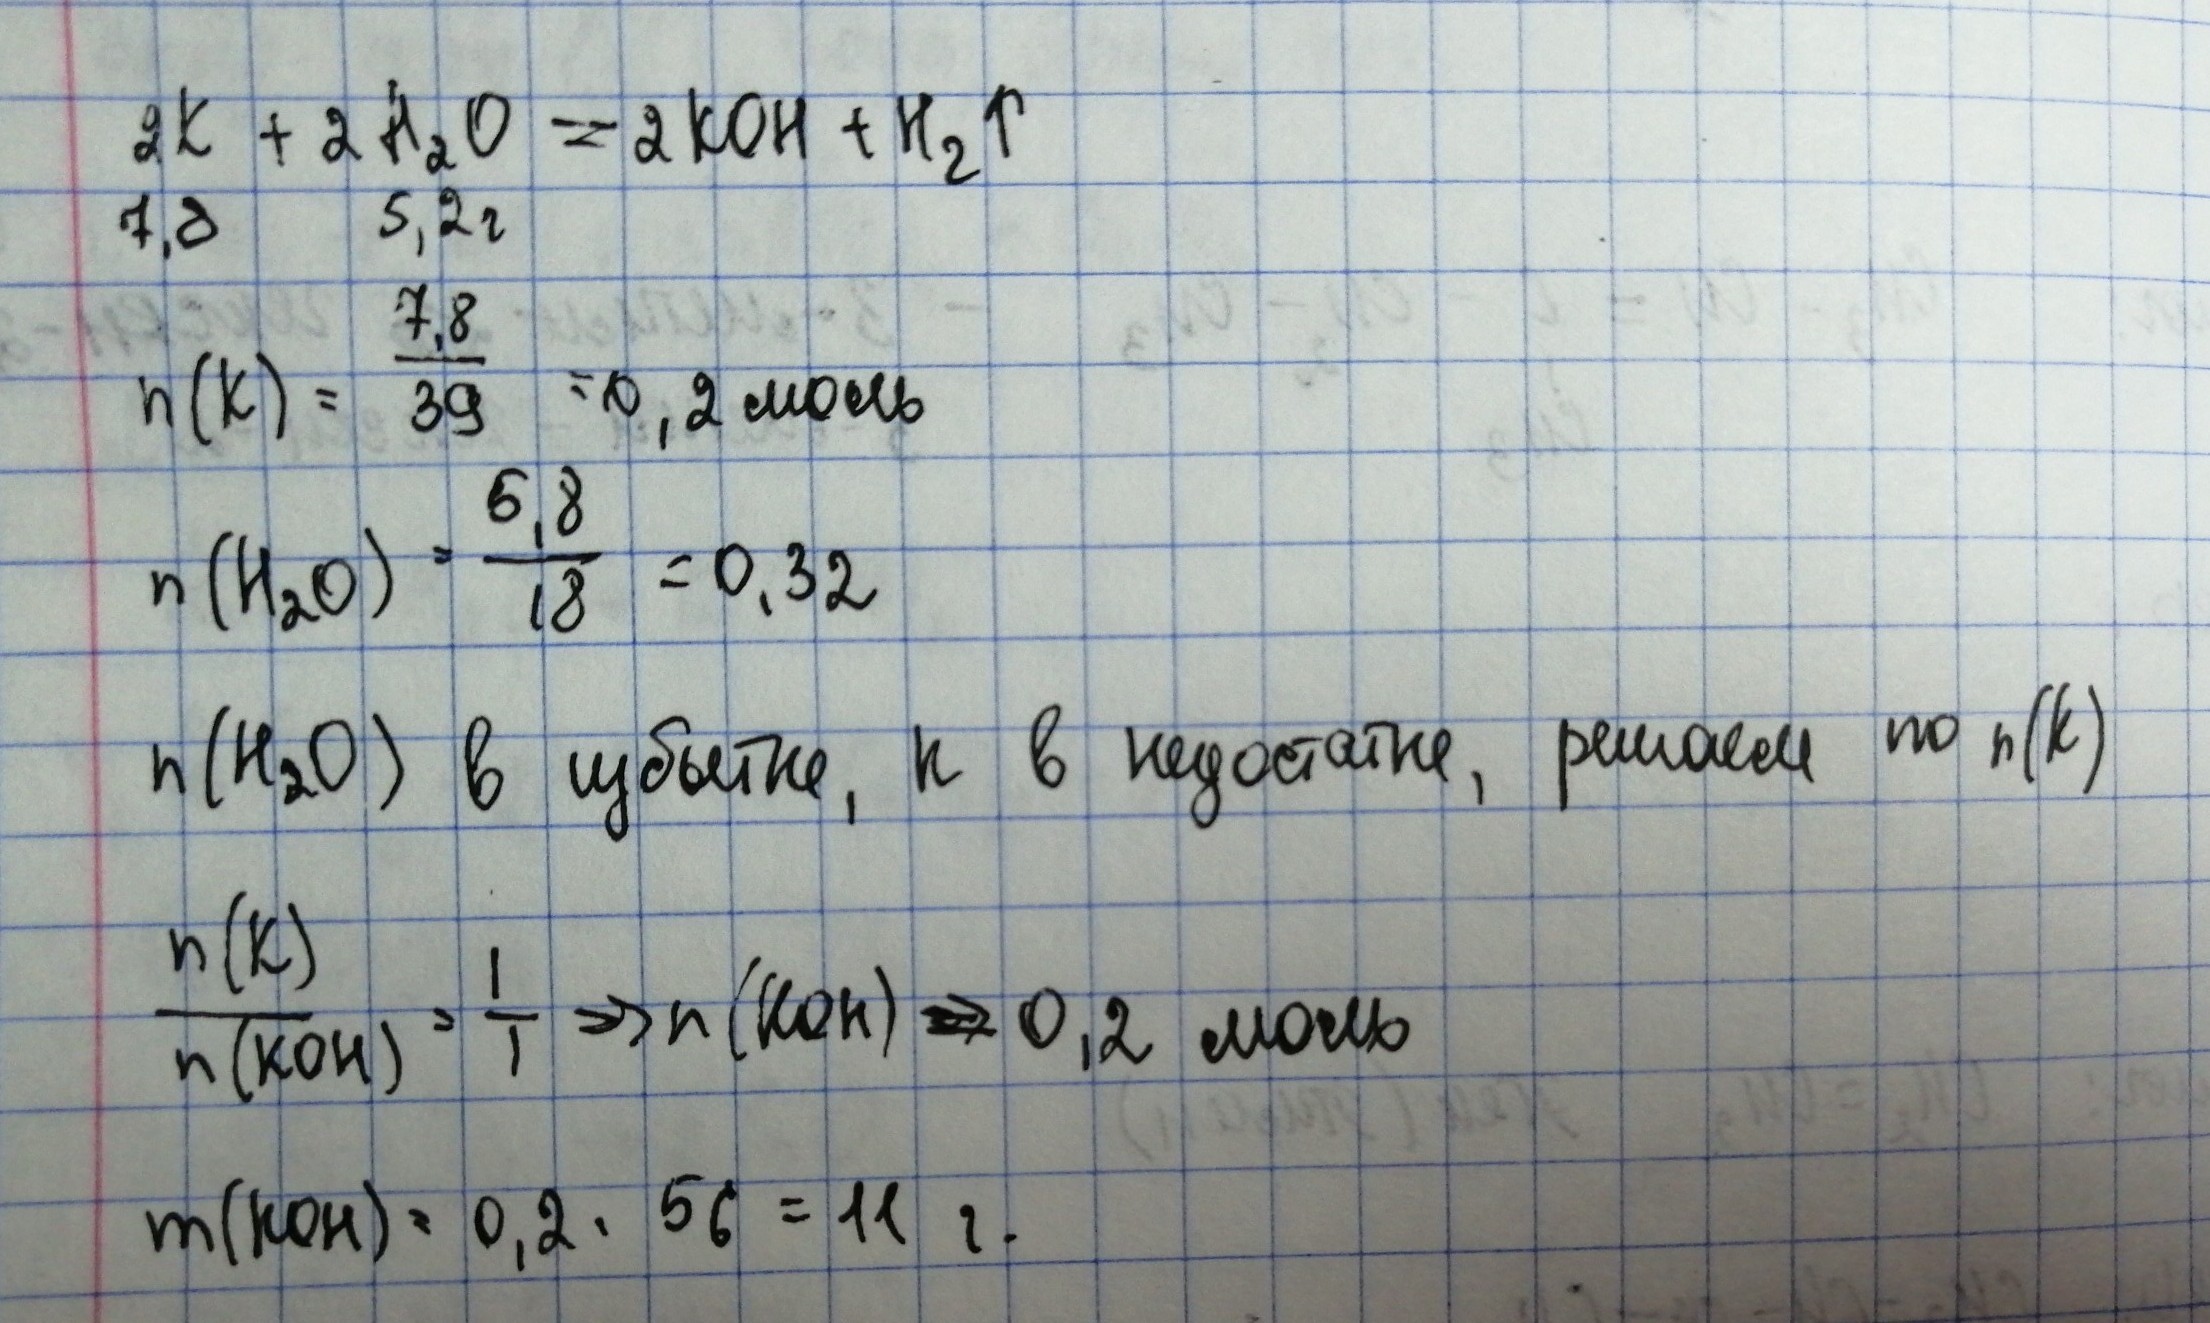 2K + 2H₂O = 2KOH + H₂↑
7,8 5,2г
n(K) = 7,8/39 = 0,2 моль
n(H₂O) = 5,8/18 = 0,32
n(H₂O) в избытке, К в недостатке, решаем по n(K)
n(K)/n(KOH) = 1/1 => n(KOH) => 0,2 моль
m(KOH) = 0,2 · 56 = 11 г.